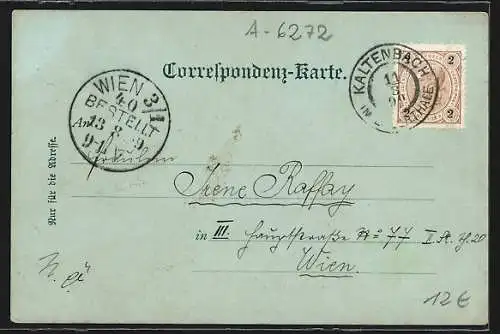 A-6272
Correspondenz-Karte.
KALTENBACH
IM ZILLERTHALE
11
8
2
2
WIEN 3/1
40
BESTELLT
13 8 9
An
Fräulein
Irene Raffay
in III. Hauptstraße No 77 II. St. Th. 20
Wien.
Nur für die Adresse.
12€